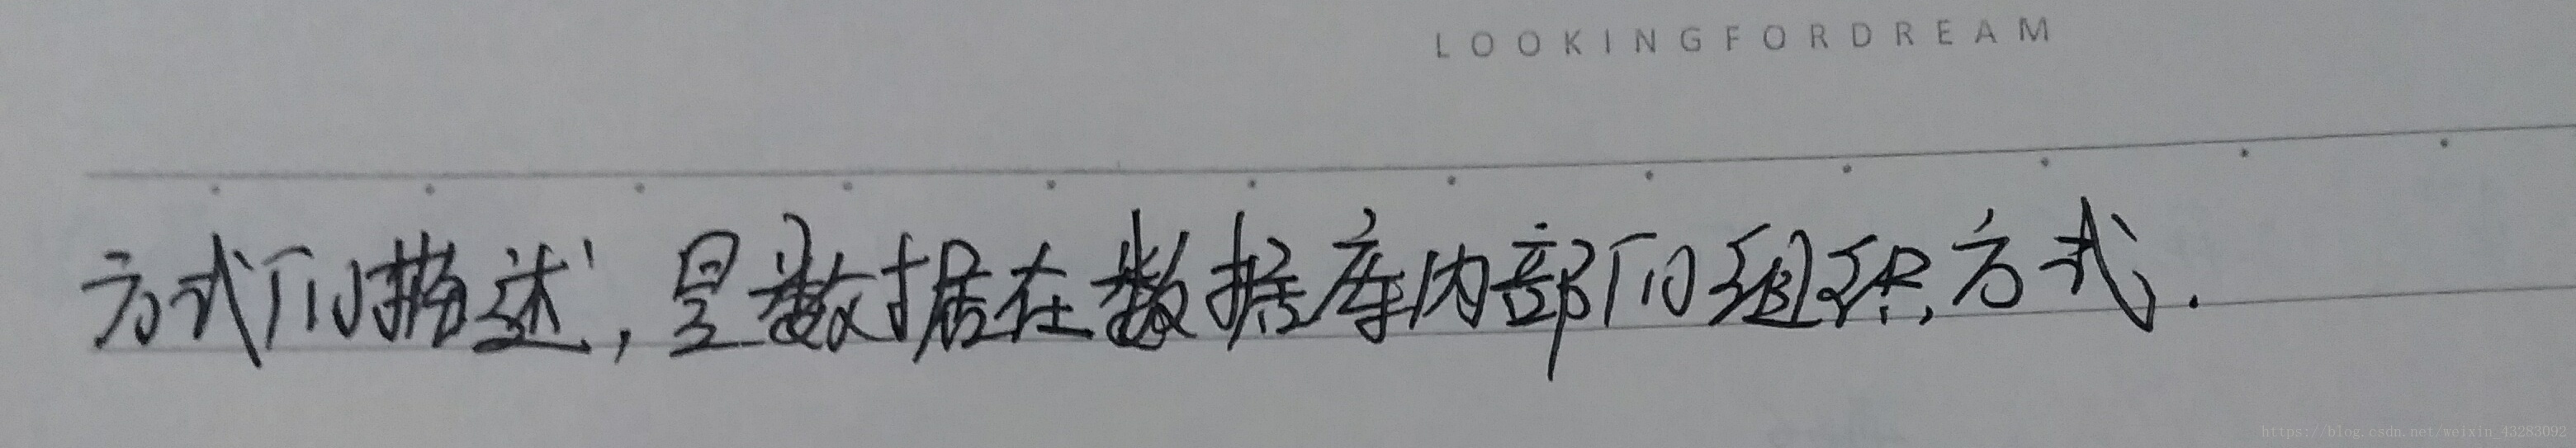 LOOKINGFORDREAM
方式的描述，是数据在数据库内部的组织方式.
https://blog.csdn.net/weixin_43283092